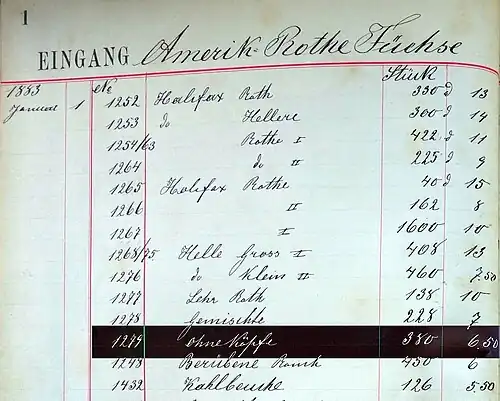 1
EINGANG Amerik. Rothe Füchse
Stück
1883 No
Januar 1 1252 Halifax Roth 330 d 13
1253 do Hellere 300 d 14
1254/63 Rothe I 422 d 11
1264 do II 225 d 9
1265 Halifax Rothe 40 d 15
1266 II 162 8
1267 I 1600 10
1268/75 Helle Gross I 408 13
1276 do Klein II 460 7.50
1277 Sehr Roth 138 10
1278 Gemischte 228 7
1279 ohne Köpfe 380 6.50
1248 450 6
1432 126 5.50